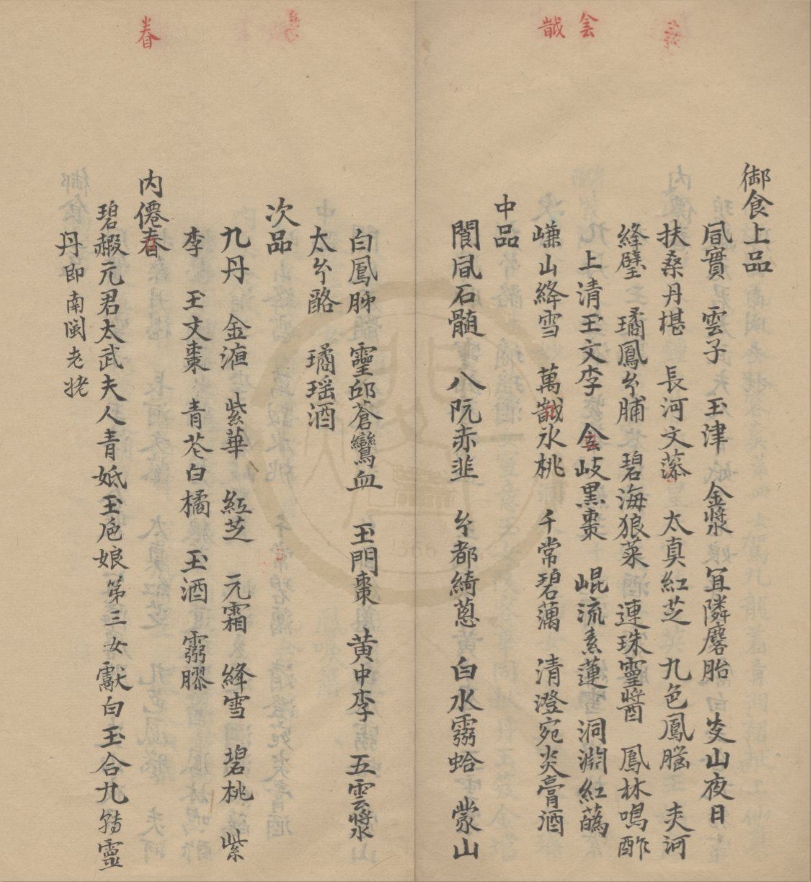 韯 㑹
春
御食上品
凮實 雲子 玉津 金漿 冝隣麐胎 山夜日
扶桑丹椹 長河文藻 太真紅芝 九色鳳腦 夾河
絳璧 璚鳳脯 碧海狼菜 連珠靈醬 鳳林鳴酢
上清玉文李 㑹岐黒棗 崐流素蓮 洞淵紅蘤
嵰山絳雪 萬韯氷桃 千常碧藕 清澄宛炎膏酒
中品
閬凮石髄 八阮赤韭 都綺葱 白水靈蛤 蒙山
白鳳肺 靈邱蒼鸞血 玉門棗 黄中李 五雲漿
太酪 璚瑶酒
次品
九丹 金洹 紫華 紅芝 元霜 絳雪 碧桃 紫
李 玉文棗 青白橘 玉酒 靈膠
内僊春
碧元君太武夫人青玉卮娘第三女獻白玉合九轉靈
丹即南閩老姥